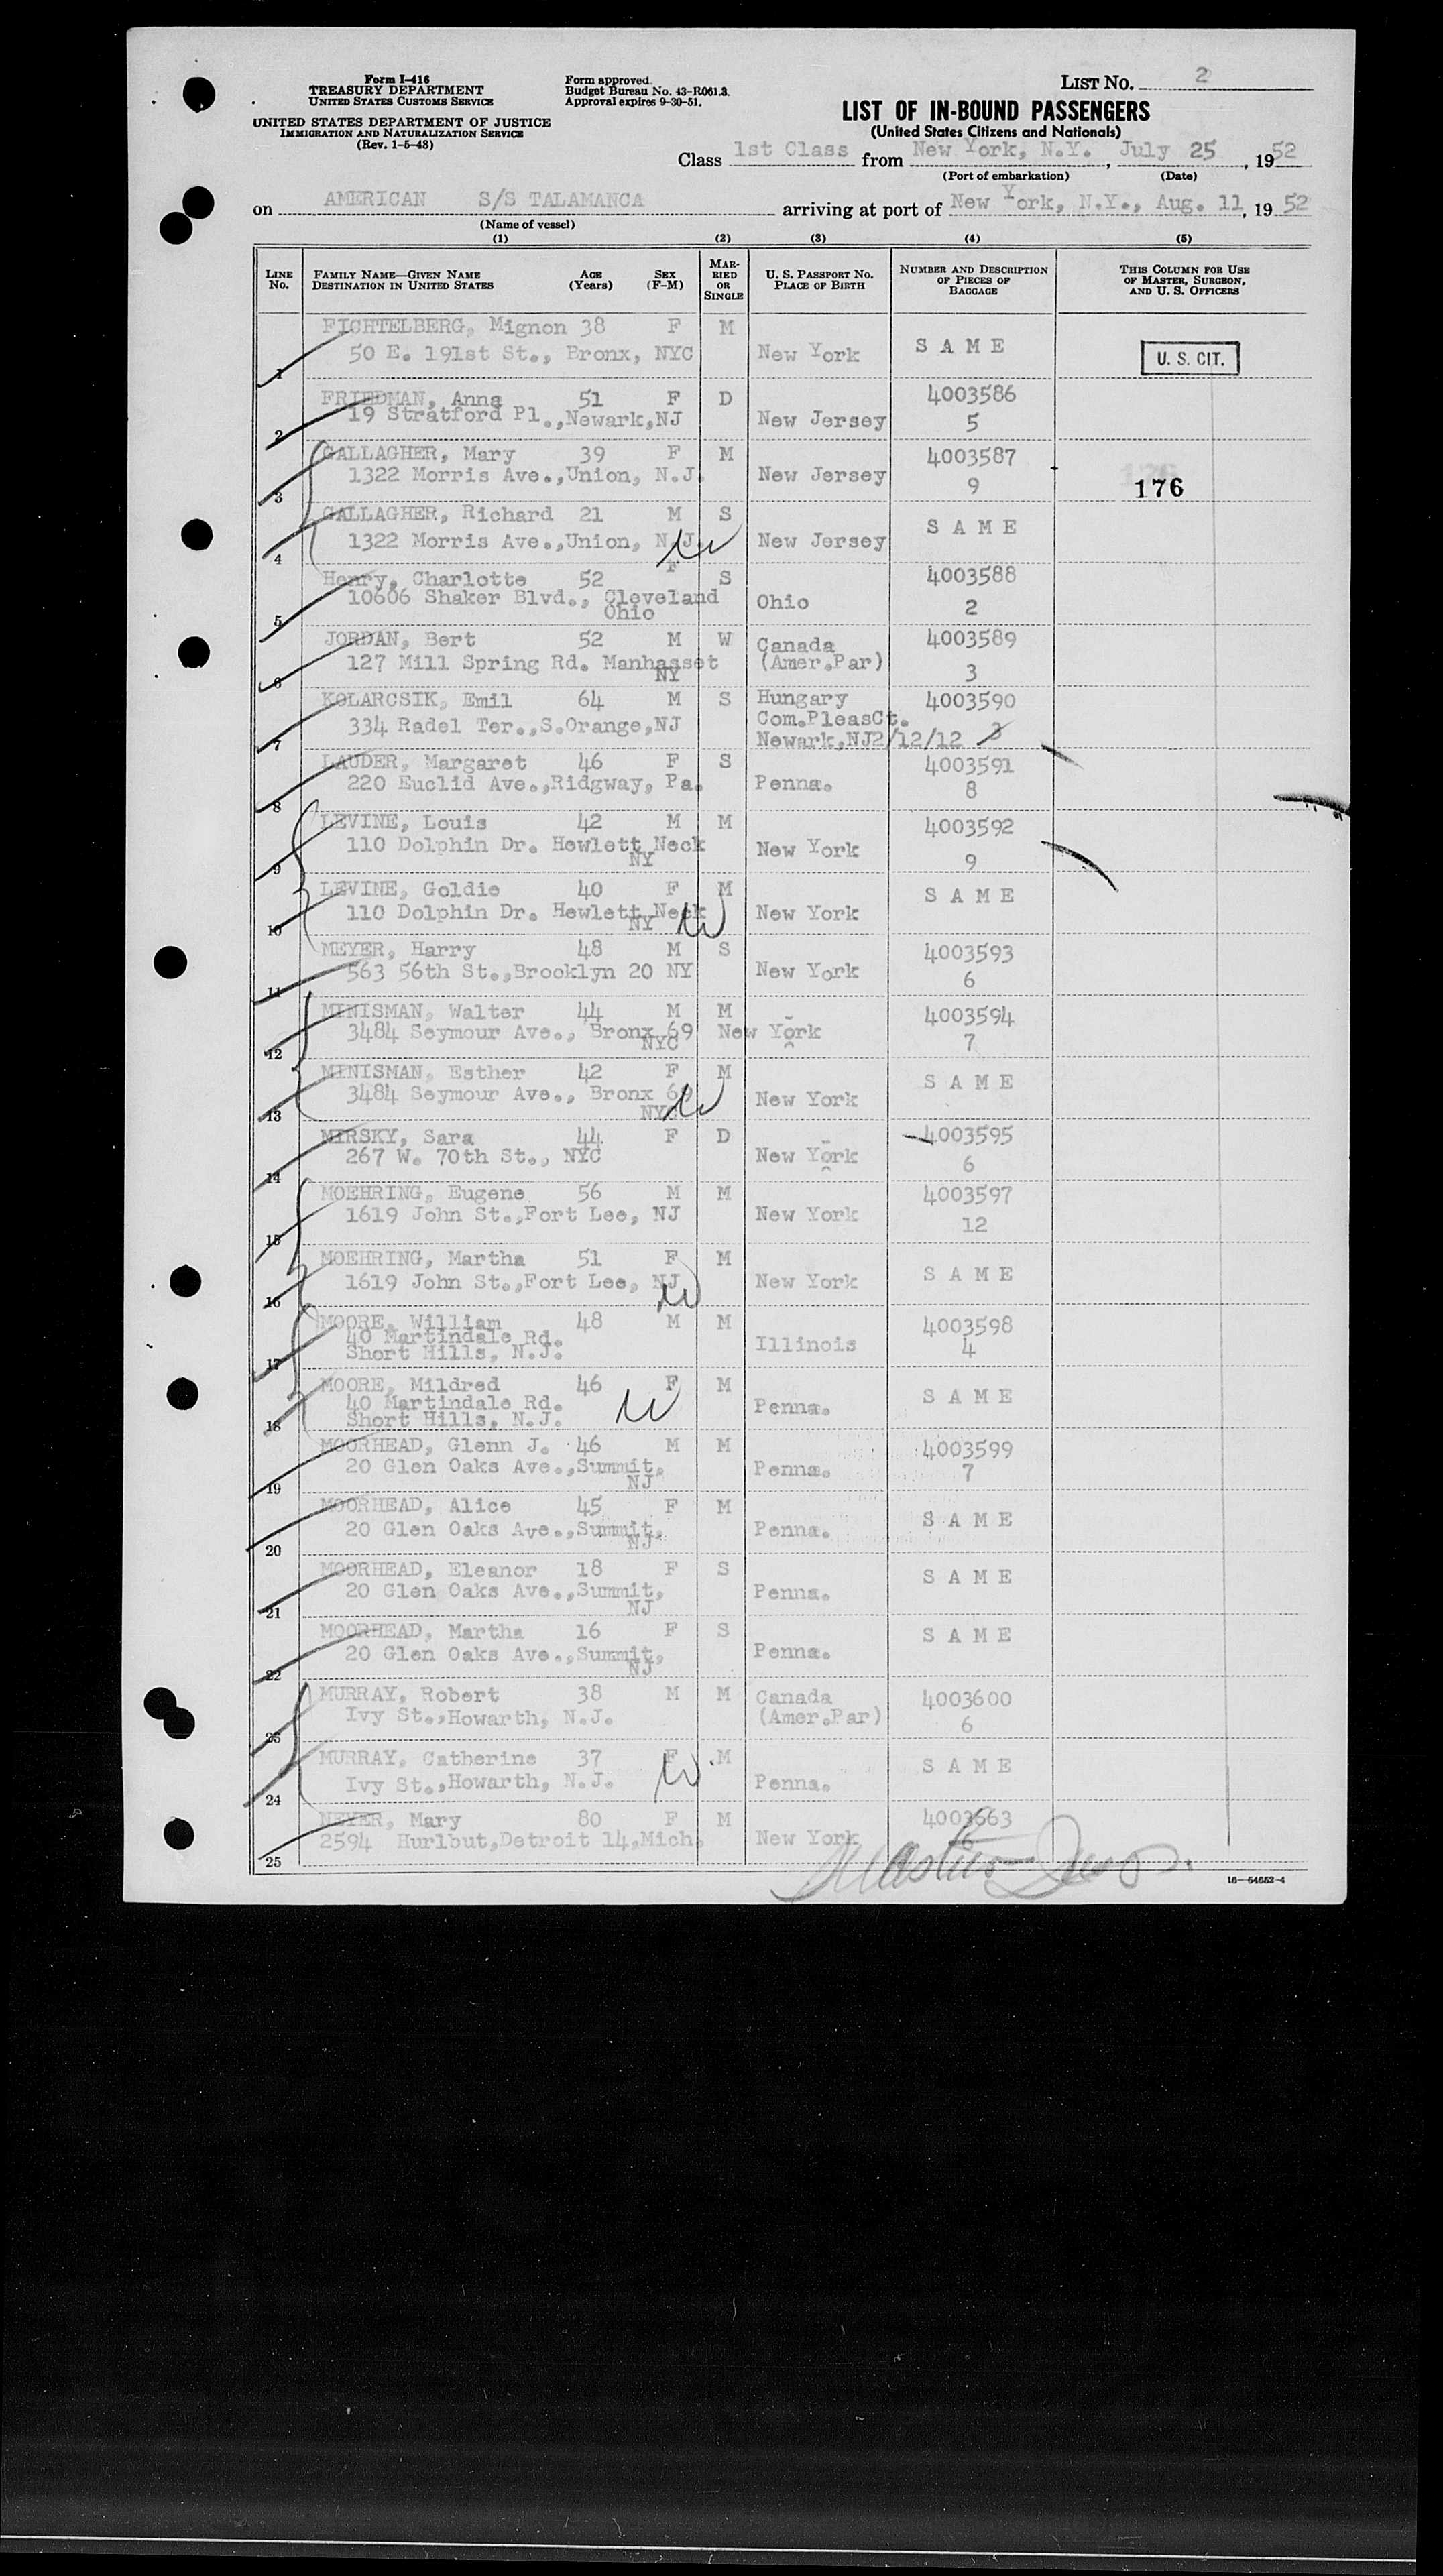 Form I-416
TREASURY DEPARTMENT
UNITED STATES CUSTOMS SERVICE
UNITED STATES DEPARTMENT OF JUSTICE
IMMIGRATION AND NATURALIZATION SERVICE
(Rev. 1-5-48)
Form approved.
Budget Bureau No. 43-R061.3.
Approval expires 9-30-51.
LIST NO. 2
LIST OF IN-BOUND PASSENGERS
(United States Citizens and Nationals)
Class 1st Class from New York, N.Y., July 25, 1952
(Port of embarkation) (Date)
on AMERICAN S/S TALAMANCA arriving at port of New York, N.Y., Aug. 11, 1952
(Name of vessel)
(1) (2) (3) (4) (5)
LINE NO.
FAMILY NAME—GIVEN NAME
DESTINATION IN UNITED STATES
AGE (Years)
SEX (F-M)
MARRIED OR SINGLE
U. S. PASSPORT NO.
PLACE OF BIRTH
NUMBER AND DESCRIPTION OF PIECES OF BAGGAGE
THIS COLUMN FOR USE OF MASTER, SURGEON, AND U. S. OFFICERS
FICHTELBERG, Mignon 38 F M
1 50 E. 191st St., Bronx, NYC New York S A M E U. S. CIT.
FRIEDMAN, Anna 51 F D 4003586
2 19 Stratford Pl.,Newark,NJ New Jersey 5
GALLAGHER, Mary 39 F M 4003587
3 1322 Morris Ave.,Union, N.J. New Jersey 9 176
GALLAGHER, Richard 21 M S S A M E
4 1322 Morris Ave.,Union, N.J. New Jersey
Henry, Charlotte 52 F S 4003588
5 10606 Shaker Blvd., Cleveland Ohio Ohio 2
JORDAN, Bert 52 M W Canada 4003589
6 127 Mill Spring Rd. Manhasset NY (Amer.Par) 3
KOLARCSIK, Emil 64 M S Hungary 4003590
7 334 Radel Ter.,S.Orange,NJ Com.PleasCt.
Newark,NJ2/12/12 3
LAUDER, Margaret 46 F S 4003591
8 220 Euclid Ave.,Ridgway, Pa. Penna. 8
LEVINE, Louis 42 M M 4003592
9 110 Dolphin Dr. Hewlett Neck NY New York 9
LEVINE, Goldie 40 F M S A M E
10 110 Dolphin Dr. Hewlett Neck NY New York
MEYER, Harry 48 M S 4003593
11 563 56th St.,Brooklyn 20 NY New York 6
MINISMAN, Walter 44 M M 4003594
12 3484 Seymour Ave., Bronx 69 NYC New York 7
MINISMAN, Esther 42 F M S A M E
13 3484 Seymour Ave., Bronx 69 NYC New York
MIRSKY, Sara 44 F D 4003595
14 267 W. 70th St., NYC New York 6
MOEHRING, Eugene 56 M M 4003597
15 1619 John St.,Fort Lee, NJ New York 12
MOEHRING, Martha 51 F M S A M E
16 1619 John St.,Fort Lee, NJ New York
MOORE, William 48 M M 4003598
40 Martindale Rd.
17 Short Hills, N.J. Illinois 4
MOORE, Mildred 46 F M S A M E
40 Martindale Rd.
18 Short Hills, N.J. Penna.
MOORHEAD, Glenn J. 46 M M 4003599
19 20 Glen Oaks Ave.,Summit, NJ Penna. 7
MOORHEAD, Alice 45 F M S A M E
20 20 Glen Oaks Ave.,Summit, NJ Penna.
MOORHEAD, Eleanor 18 F S S A M E
21 20 Glen Oaks Ave.,Summit, NJ Penna.
MOORHEAD, Martha 16 F S S A M E
22 20 Glen Oaks Ave.,Summit, NJ Penna.
MURRAY, Robert 38 M M Canada 4003600
23 Ivy St.,Howarth, N.J. (Amer.Par) 6
MURRAY, Catherine 37 F M S A M E
24 Ivy St.,Howarth, N.J. Penna.
NEYER, Mary 80 F M 4003663
25 2594 Hurlbut,Detroit 14,Mich. New York 6
16—54652-4